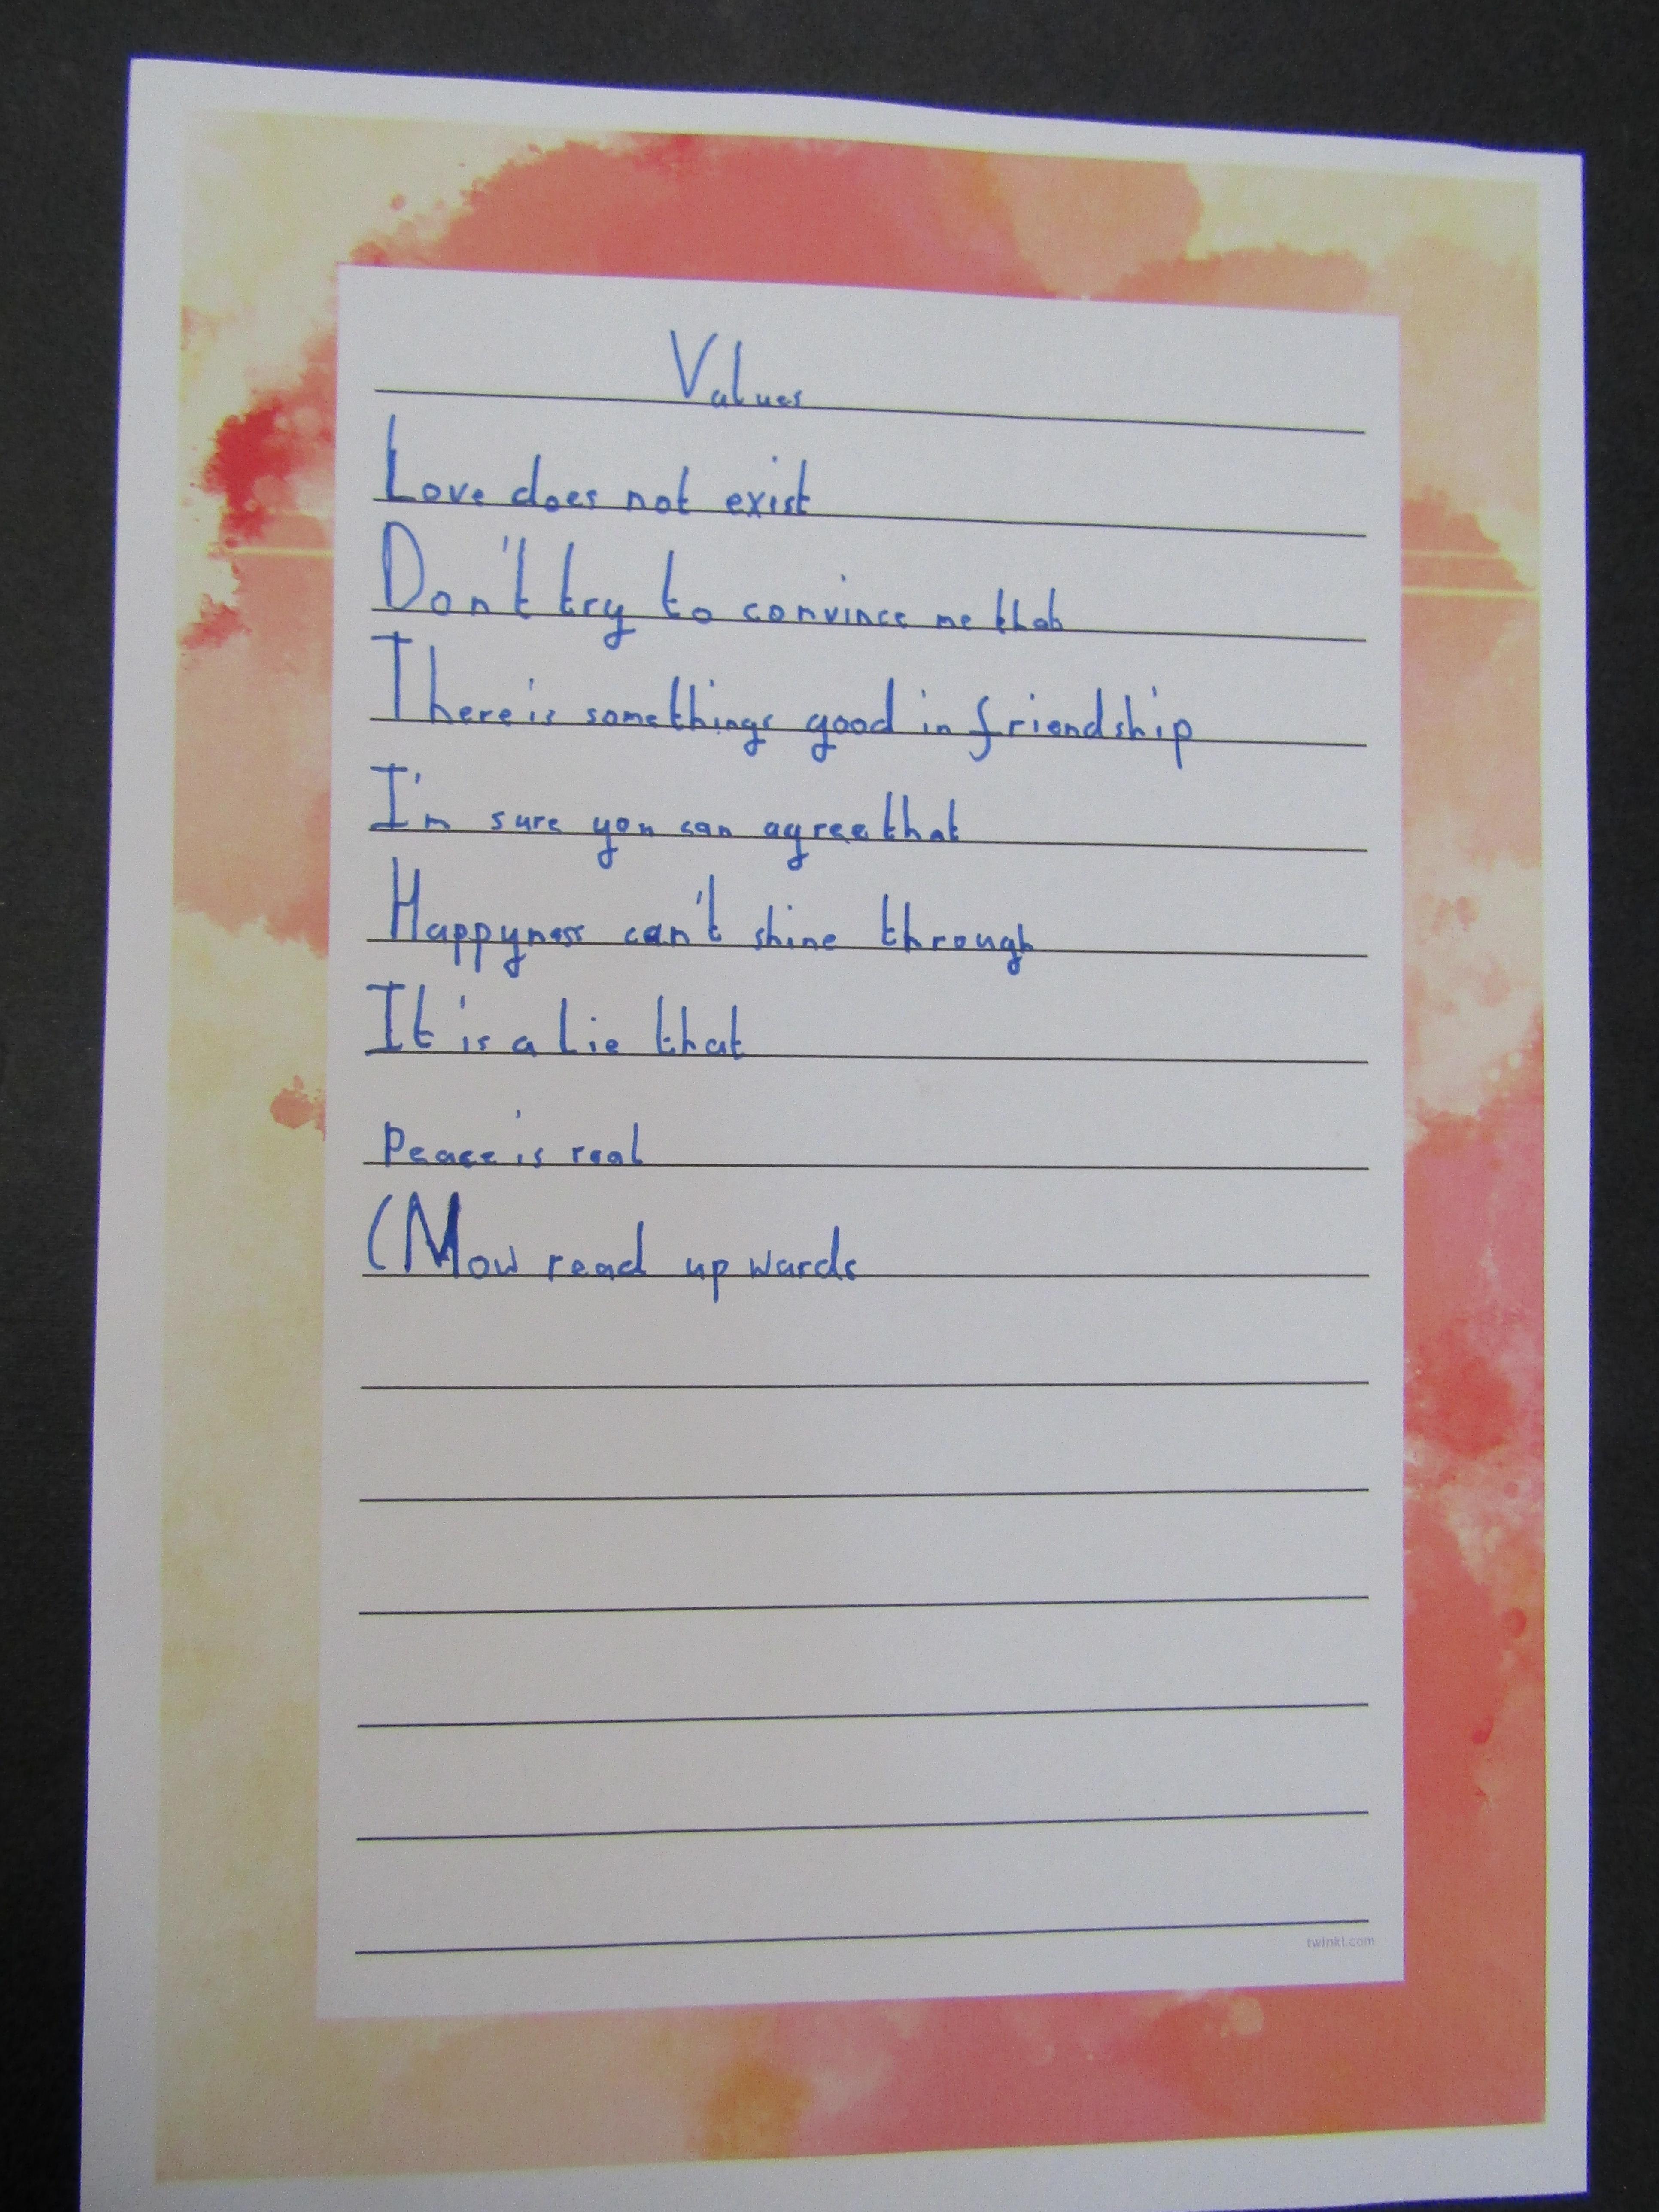 Values
Love does not exist
Don't try to convince me that
There is somethings good in friendship
I'm sure you can agree that
Happyness can't shine through
It is a lie that
Peace is real
(Now read upwards
twinkl.com